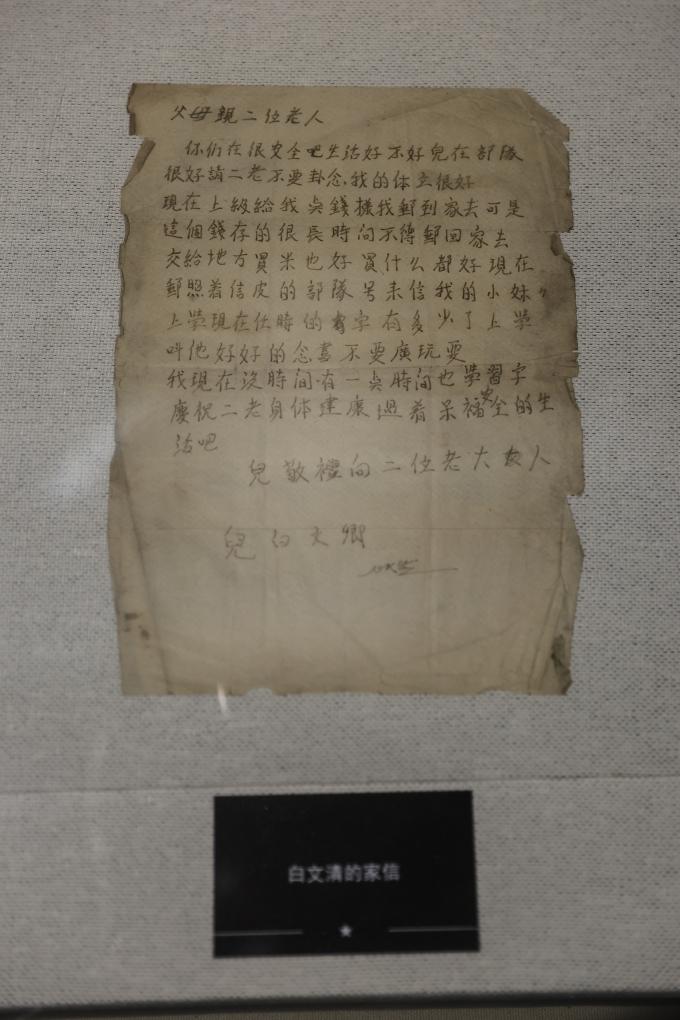 父母親二位老人
你们在很安全吧生活好不好兒在部隊
很好請二老不要卦念我的体立很好
現在上級給我点錢樣我郵到家去可是
這個錢存的很長時间不得郵回家去
交給地方買米也好買什么都好現在
郵照着信皮的部隊号来信我的小妹
上學現在什時的字有多少了上學
叫他好好的念書不要廣玩耍
我現在沒時间有一点時间也學習字
慶祝二老身体建康過着呆福安全的生
活吧
兒敬禮向二位老大人
兒白文卿
白文清的家信